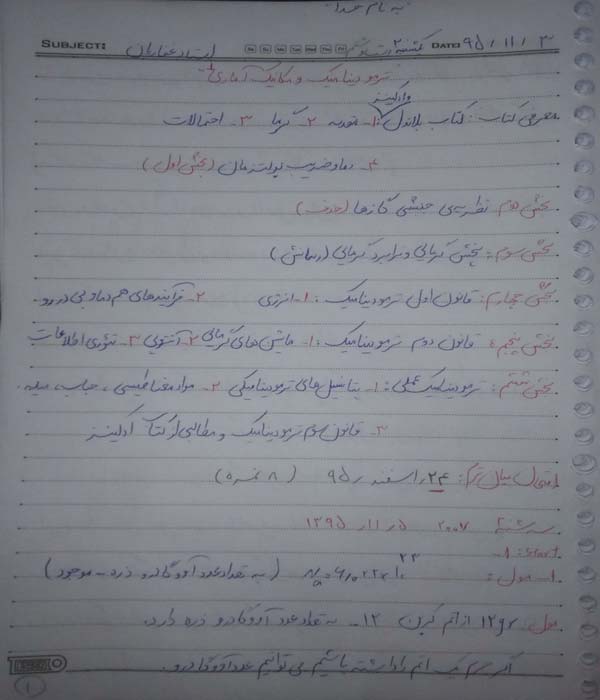 به نام خدا
SUBJECT: استاد غفاریان Sa Su Mo Tue Wed Thu Fri یکشنبه DATE: ۹۵ / ۱۱ / ۳
ترمودینامیک و مکانیک آماری ۱
معرفی کتاب: کتاب بلاندل: ۱- مقدمه ۲- گرما ۳- احتمالات
۴- دما و ضریب بولتزمان (بخش اول)
بخش دوم: نظریه‌ی جنبشی گازها (حذف)
بخش سوم: پخش گرمایی و ترابرد گرمایی (رسانش)
بخش چهارم: قانون اول ترمودینامیک: ۱- انرژی ۲- فرآیندهای هم دما و بی دررو
بخش پنجم: قانون دوم ترمودینامیک: ۱- ماشین های گرمایی ۲- آنتروپی ۳- تئوری اطلاعات
بخش ششم: ترمودینامیک عملی: ۱- پتانسیل های ترمودینامیکی ۲- مواد مغناطیسی، حباب، میله
۳- قانون سوم ترمودینامیک و مطالبی از کتاب ادکینز
امتحان میان ترم: ۲۴ اسفند ۹۵ (۸ نمره)
سه شنبه ۱۳۹۵ / ۱۱ / ۵
Start: ۱-
(به تعداد عدد آووگادرو ذره موجود)
مول: ۱۲gr از اتم کربن ۱۲- به تعداد عدد آووگادرو ذره دارد.
اگر جرم یک اتم را داشته باشیم می توانیم عدد آووگادرو
۱